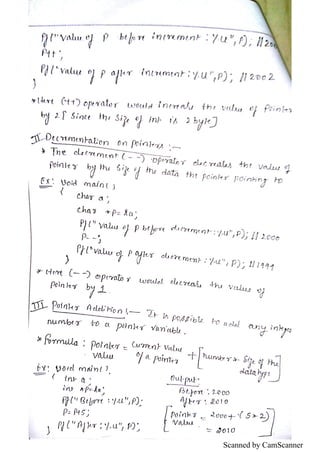 Pf("Value of P before increment : %u", P); // 2000
P++;
Pf("Value of P after increment : %u", P); // 2002
}
* Here (++) operator would increase the value of Pointer
by 2 [Since the Size of int is 2 byte]
II Decrementation on pointers :-
* The decrement (--) operator decreases the value of
Pointer by the Size of the data the pointer pointing to
Ex: void main( )
{
char a ;
char *P = &a ;
Pf("Value of P before decrement : %u", P); // 2000
P--;
Pf("Value of P after decrement : %u", P); // 1999
* Here (--) operator would decrease the value of
Pointer by 1
III Pointer Addition :- It is possible to add any integer
number to a pointer variable.
* formula : pointer = Current value + [number * Size of the
value of a pointer datatype]
Ex: void main( ).
{ int a ; Output:
int *P = &a ; Before : 2000
Pf("Before : %u", P); After : 2010
P = P+5 ; [Pointer = 2000 + (5 * 2)
} Pf("After : %u", P); Value = 2010
Scanned by CamScanner